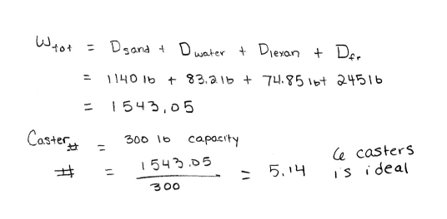 W tot = D sand + D water + D lexan + D fr
= 1140 lb + 83.2 lb + 74.85 lb + 245 lb
= 1543.05
Caster # = 300 lb capacity
# = 1543.05 / 300 = 5.14 6 casters is ideal